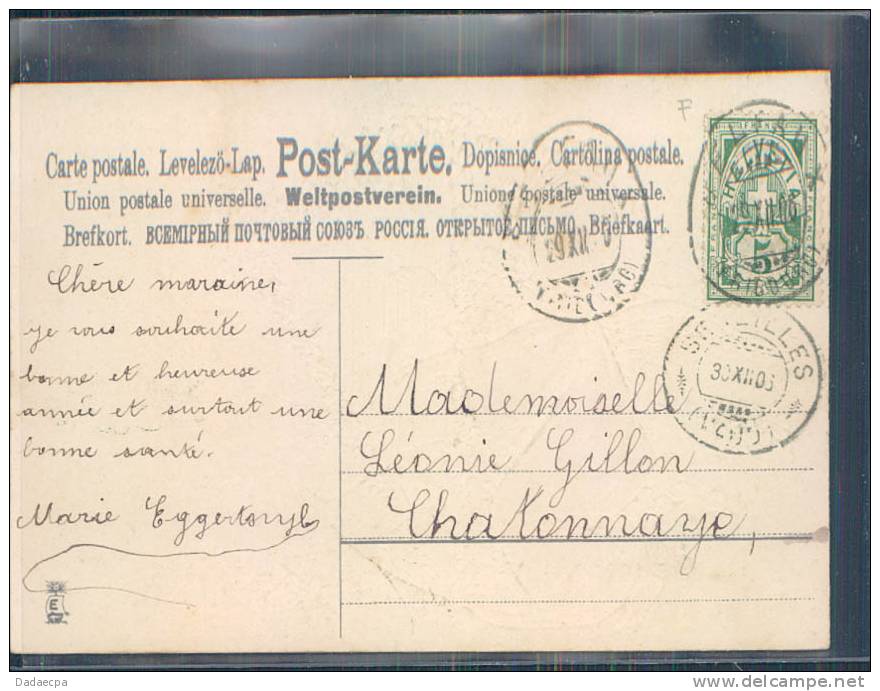 F
Carte postale. Levelezö-Lap. Post-Karte. Dopisnice. Cartolina postale.
Union postale universelle. Weltpostverein. Unione postale universale.
Brefkort. ВСЕМІРНЫЙ ПОЧТОВЫЙ СОЮЗЪ. РОССІЯ. ОТКРЫТОЕ ПИСЬМО. Briefkaart.
FRANCO HELVETIA 5
29 XII
SEVEILLES
30 XII 06
Chère maraine,
je vous souhaite une
bonne et heureuse
année et surtout une
bonne santé.
Marie
Mademoiselle
Léonie Gillon
Chatonnaye,
E
Dadaecpa
www.delcampe.net